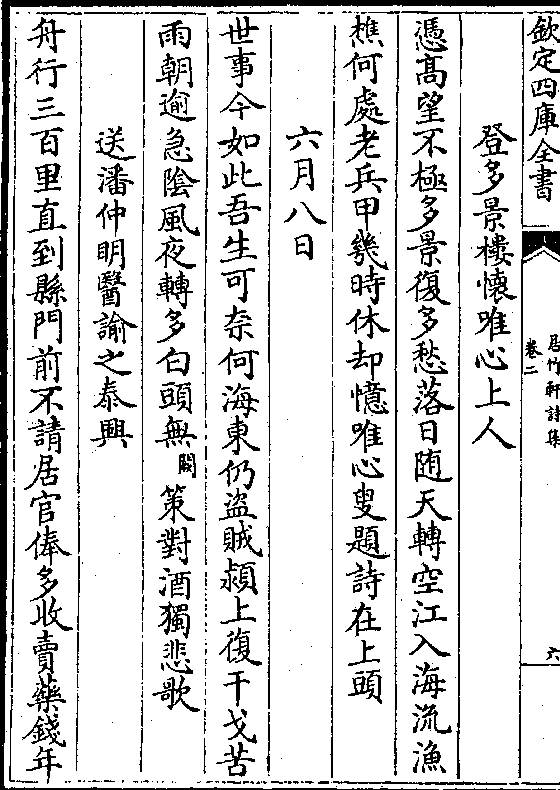 欽定四庫全書
居竹軒詩集
卷二
六
登多景樓懷唯心上人
憑高望不極多景復多愁落日随天轉空江入海流漁
樵何處老兵甲幾時休却憶唯心叟題詩在上頭
六月八日
世事今如此吾生可奈何海東仍盗賊潁上復干戈苦
雨朝逾急隂風夜轉多白頭無闕策對酒獨悲歌
送潘仲明醫諭之泰興
舟行三百里直到縣門前不請居官俸多收賣藥錢年